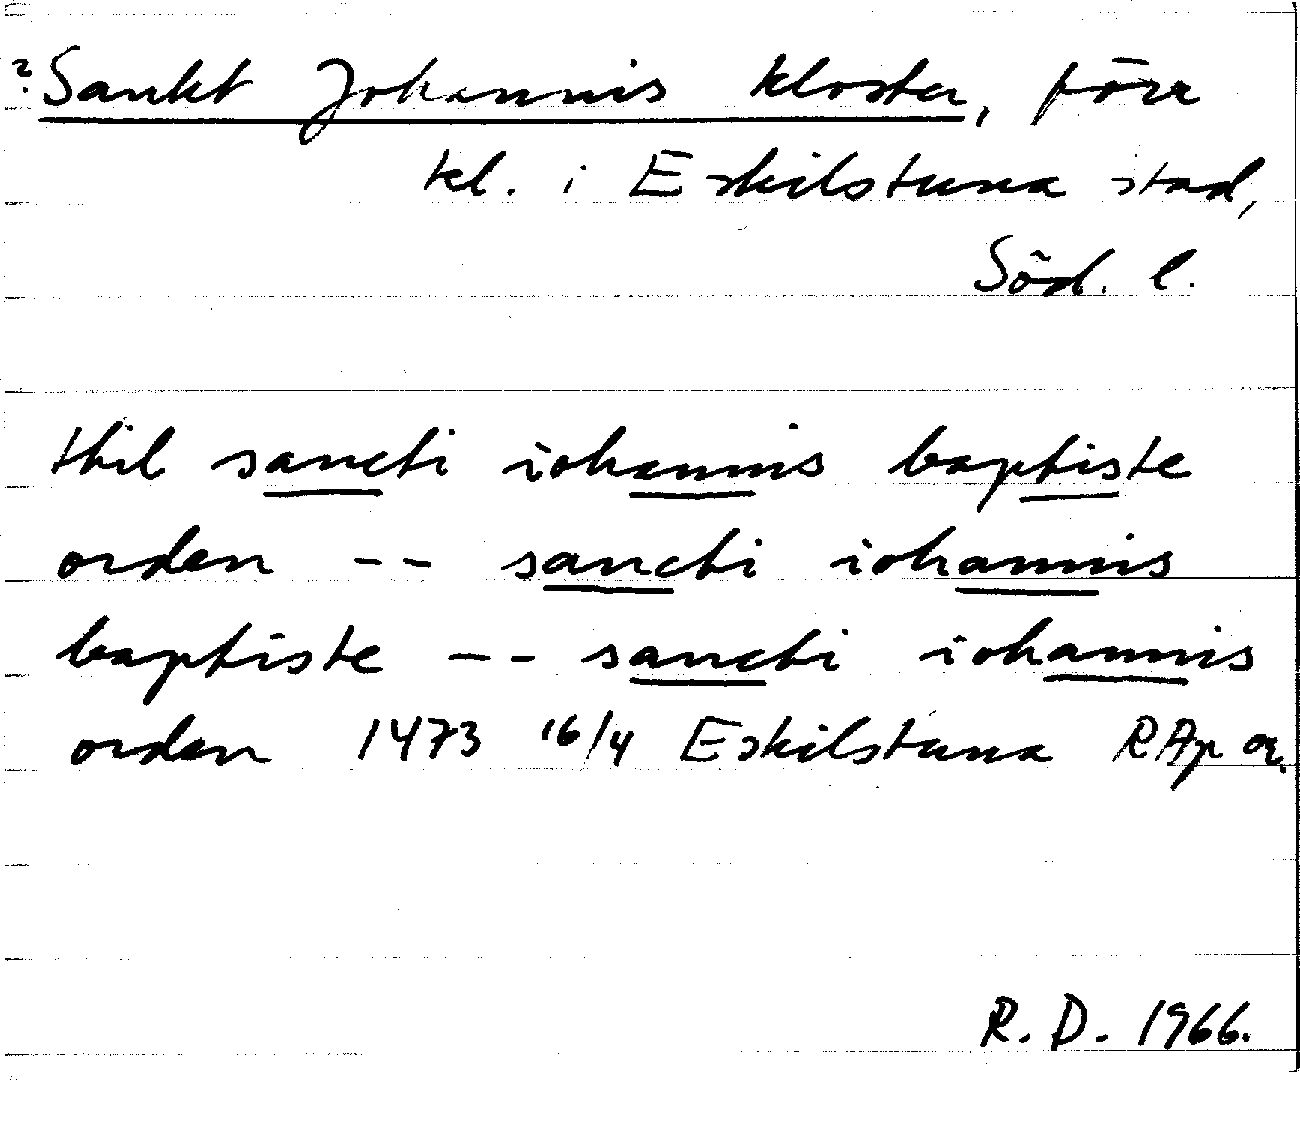 ? Sankt Johannis kloster, förr
kl. i Eskilstuna stad,
Söd. l.
thil sancti iohannis baptiste
orden -- sancti iohannis
baptiste -- sancti iohannis
orden 1473 16/4 Eskilstuna RAp or.
R. D. 1966.